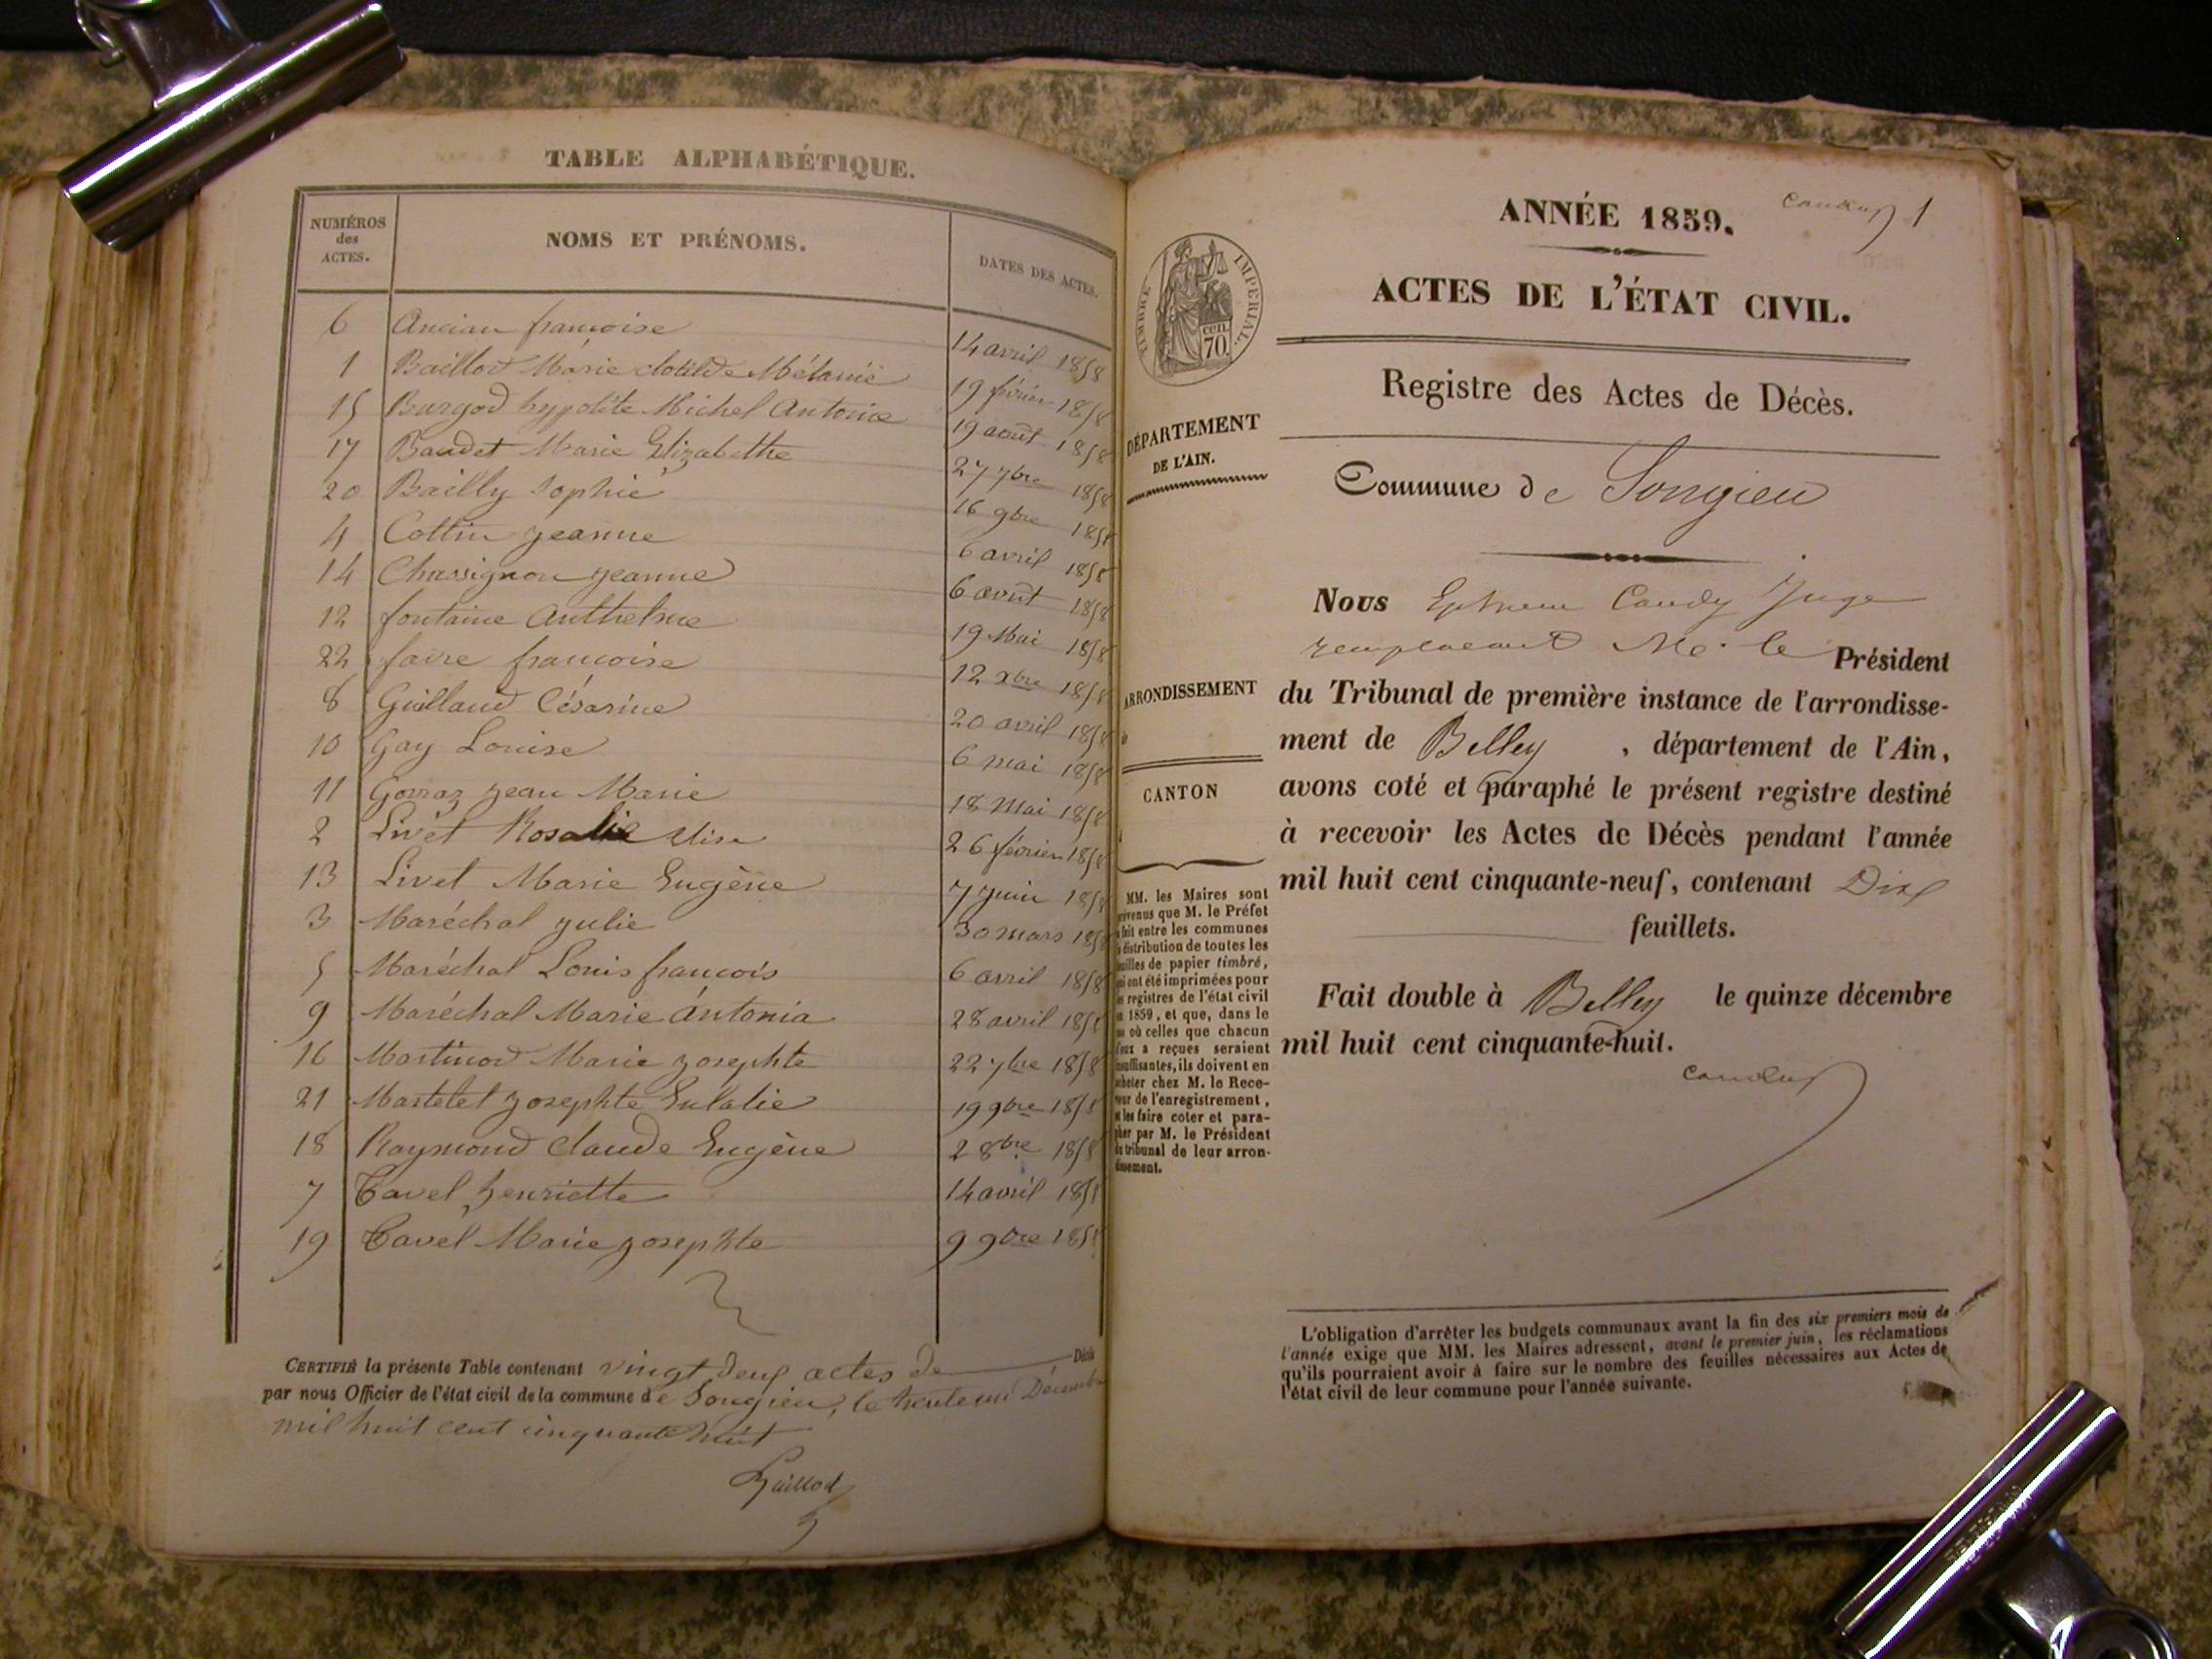 TABLE ALPHABÉTIQUE.
NUMÉROS des ACTES.
NOMS ET PRÉNOMS.
DATES DES ACTES.
6 Ancian françoise 14 avril 1858
1 Baillod Marie clotilde Mélanie 19 février 1858
15 Burgod hypolite Michel Antoine 19 août 1858
17 Baudet Marie Elizabethe 27 7bre 1858
20 Bailly Sophie 16 9bre 1858
4 Cottin Jeanne 6 avril 1858
14 Chassignon Jeanne 6 août 1858
12 fontaine Anthelme 19 Mai 1858
22 favre françoise 12 xbre 1858
8 Guilland Césarine 20 avril 1858
10 Gay Louise 6 mai 1858
11 Gorraz Jean Marie 18 Mai 1858
2 Livet Rosalie Elise 26 février 1858
13 Livet Marie Eugène 7 Juin 1858
3 Maréchal Julie 30 mars 1858
5 Maréchal Louis françois 6 avril 1858
9 Maréchal Marie Antonia 28 avril 1858
16 Martinod Marie Josephte 22 7bre 1858
21 Martelet Josephte Eulalie 19 9bre 1858
18 Raymond Claude Eugène 2 8bre 1858
7 Tavel henriette 14 avril 1858
19 Tavel Marie Josephte 9 9bre 1858
CERTIFIÉ la présente Table contenant vingt deux actes de Décès
par nous Officier de l'état civil de la commune de Songieu, le trente un Décembre
mil huit cent cinquante huit
Baillod
ANNÉE 1859.
1
ACTES DE L'ÉTAT CIVIL.
TIMBRE IMPERIAL.
cen. 70.
Registre des Actes de Décès.
DÉPARTEMENT
DE L'AIN.
Commune de Songieu
Nous Ephrem Candy Juge
remplaçant Mr. le Président
du Tribunal de première instance de l'arrondisse-
ment de Belley , département de l'Ain,
avons coté et paraphé le présent registre destiné
à recevoir les Actes de Décès pendant l'année
mil huit cent cinquante-neuf, contenant Dix
feuillets.
Fait double à Belley le quinze décembre
mil huit cent cinquante-huit.
ARRONDISSEMENT
CANTON
MM. les Maires sont
prévenus que M. le Préfet
a fait entre les communes
la distribution de toutes les
feuilles de papier timbré,
qui ont été imprimées pour
les registres de l'état civil
en 1859, et que, dans le
cas où celles que chacun
d'eux a reçues seraient
insuffisantes, ils doivent en
acheter chez M. le Rece-
veur de l'enregistrement,
et les faire coter et para-
pher par M. le Président
du tribunal de leur arron-
dissement.
L'obligation d'arrêter les budgets communaux avant la fin des six premiers mois de
l'année exige que MM. les Maires adressent, avant le premier juin, les réclamations
qu'ils pourraient avoir à faire sur le nombre des feuilles nécessaires aux Actes de
l'état civil de leur commune pour l'année suivante.